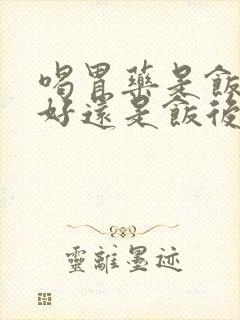 喝胃藥是飯
好還是飯後
靈離墨迹